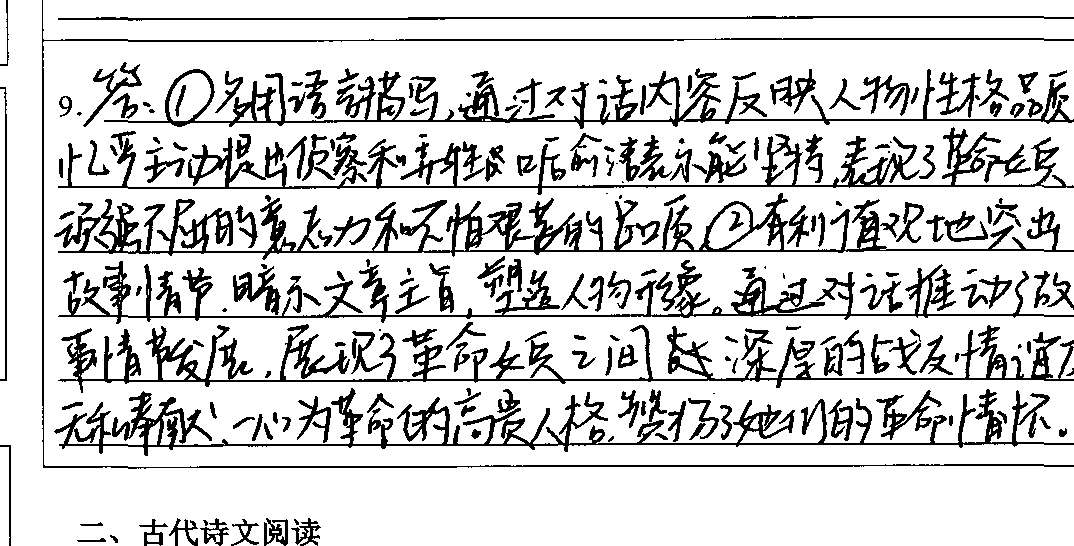 9. 答：①多用语言描写，通过对话内容反映人物性格品质
忆严主动提出侦察和弄牲口后俞洁表示能坚持，表现了革命女兵
顽强不屈的意志力和不怕艰苦的品质。②有利于直观地突出
故事情节，暗示文章主旨，塑造人物形象。通过对话推动了故
事情节发展，展现了革命女兵之间深厚的战友情谊及
无私奉献、一心为革命的高贵人格，赞扬了她们的革命情怀。
二、古代诗文阅读